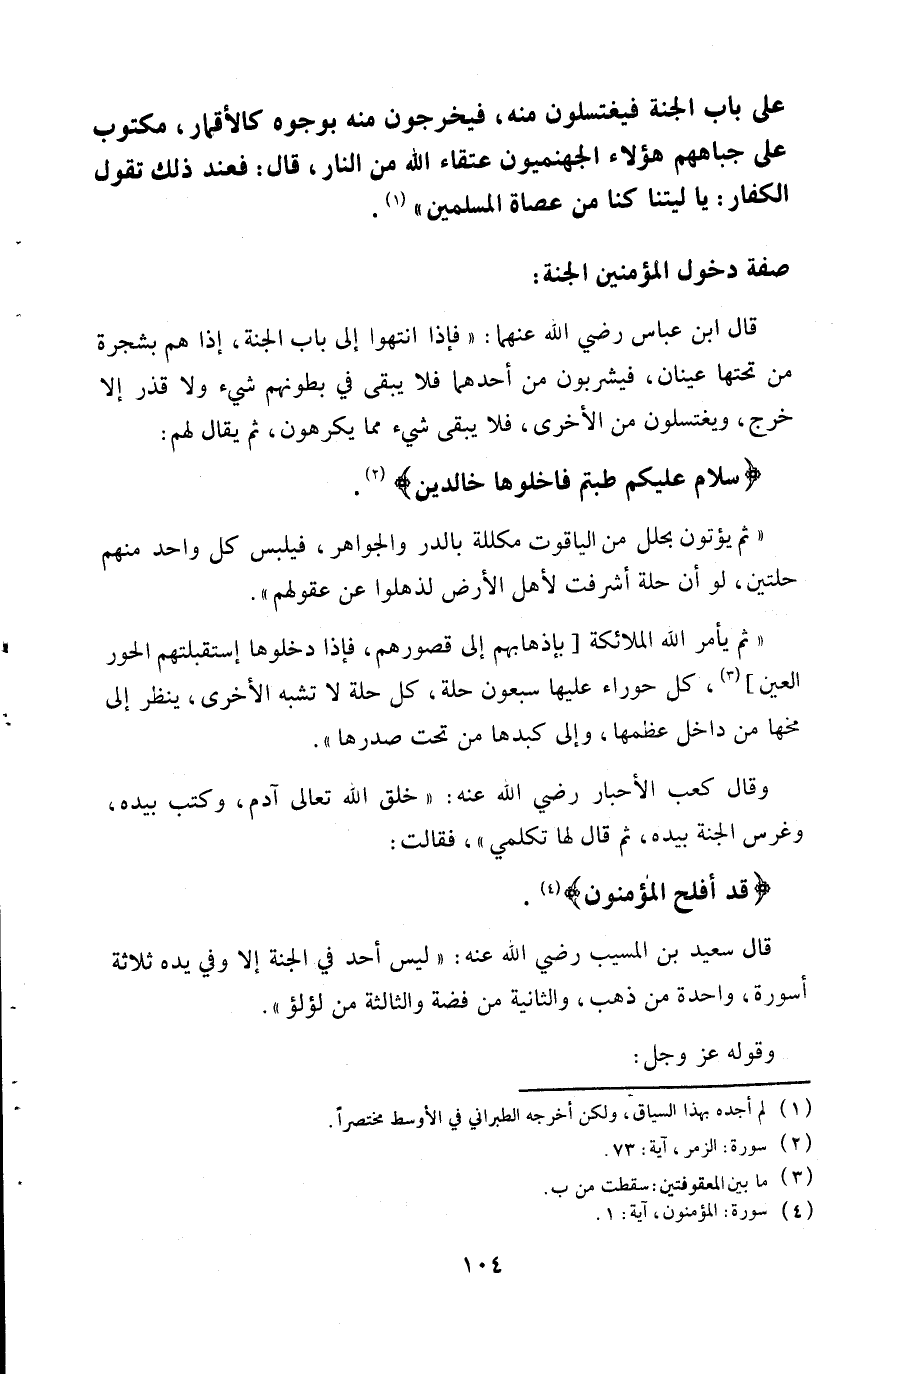 على باب الجنة فيغتسلون منه، فيخرجون منه بوجوه كالأقمار، مكتوب
على جباههم هؤلاء الجهنميون عتقاء الله من النار، قال: فعند ذلك تقول
الكفار: يا ليتنا كنا من عصاة المسلمين» (١).
صفة دخول المؤمنين الجنة:
قال ابن عباس رضي الله عنهما: « فإذا انتهوا إلى باب الجنة، إذا هم بشجرة
من تحتها عينان، فيشربون من أحدهما فلا يبقى في بطونهم شيء ولا قذر إلا
خرج، ويغتسلون من الأخرى، فلا يبقى شيء مما يكرهون، ثم يقال لهم:
﴿سلام عليكم طبتم فاخلوها خالدين﴾ (٢).
« ثم يؤتون بحلل من الياقوت مكللة بالدر والجواهر، فيلبس كل واحد منهم
حلتين، لو أن حلة أشرفت لأهل الأرض لذهلوا عن عقولهم».
« ثم يأمر الله الملائكة [ بإذهابهم إلى قصورهم، فإذا دخلوها إستقبلتهم الحور
العين ] (٣)، كل حوراء عليها سبعون حلة، كل حلة لا تشبه الأخرى، ينظر إلى
مخها من داخل عظمها، وإلى كبدها من تحت صدرها».
وقال كعب الأحبار رضي الله عنه: « خلق الله تعالى آدم، وكتب بيده،
وغرس الجنة بيده، ثم قال لها تكلمي»، فقالت:
﴿قد أفلح المؤمنون﴾ (٤).
قال سعيد بن المسيب رضي الله عنه: « ليس أحد في الجنة إلا وفي يده ثلاثة
أسورة، واحدة من ذهب، والثانية من فضة والثالثة من لؤلؤ».
وقوله عز وجل:
(١) لم أجده بهذا السياق، ولكن أخرجه الطبراني في الأوسط مختصراً.
(٢) سورة: الزمر، آية: ٧٣.
(٣) ما بين المعقوفتين: سقطت من ب.
(٤) سورة: المؤمنون، آية: ١.
١٠٤